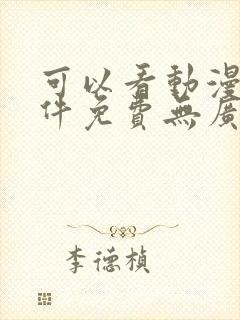 可以看動漫
件免費無廣
李德楨